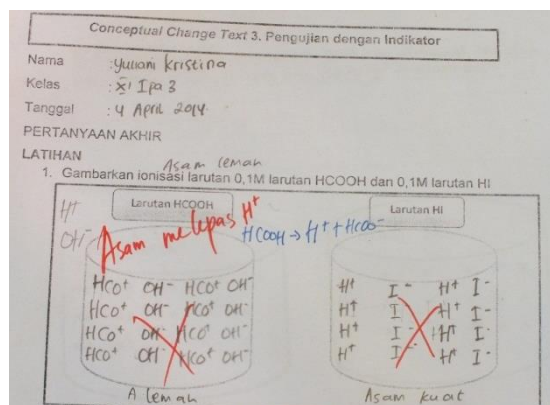 Conceptual Change Text 3. Pengujian dengan Indikator
Nama : Yuliani Kristina
Kelas : XI Ipa 3
Tanggal : 4 April 2014.
PERTANYAAN AKHIR
LATIHAN
Asam lemah
1. Gambarkan ionisasi larutan 0,1M larutan HCOOH dan 0,1M larutan HI
Larutan HCOOH
Larutan HI
H⁺
OH⁻
Asam melepas H⁺
HCOOH → H⁺ + HCOO⁻
HCO⁺ OH⁻ HCO⁺ OH⁻
HCO⁺ OH⁻ HCO⁺ OH⁻
HCO⁺ OH⁻ HCO⁺ OH⁻
HCO⁺ OH⁻ HCO⁺ OH⁻
A lemah
H⁺ I⁻ H⁺ I⁻
H⁺ I⁻ H⁺ I⁻
H⁺ I⁻ H⁺ I⁻
H⁺ I⁻ H⁺ I⁻
Asam kuat